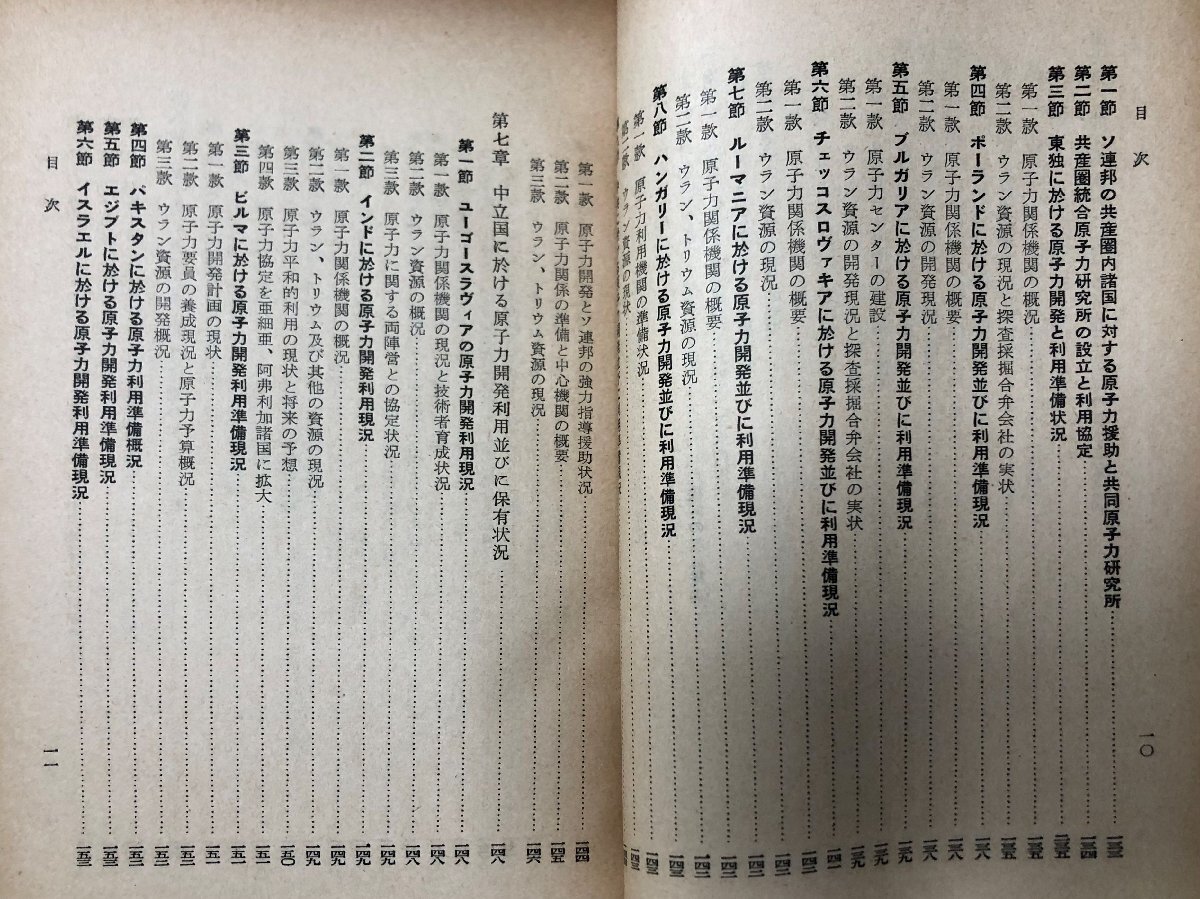 目次
一〇
第一節 ソ連邦の共産圏内諸国に対する原子力援助と共同原子力研究所……一三三
第二節 共産圏統合原子力研究所の設立と利用協定……一三四
第三節 東独に於ける原子力開発と利用準備状況……一三五
第一款 原子力関係機関の概況……一三五
第二款 ウラン資源の現況と探査採掘合弁会社の実状……一三五
第四節 ポーランドに於ける原子力開発並びに利用準備現況……一三八
第一款 原子力関係機関の概要……一三八
第二款 ウラン資源の開発現況……一三八
第五節 ブルガリアに於ける原子力開発並びに利用準備現況……一三九
第一款 原子力センターの建設……一三九
第二款 ウラン資源の開発現況と探査採掘合弁会社の実状……一三九
第六節 チェッコスロヴァキアに於ける原子力開発並びに利用準備現況……一四一
第一款 原子力関係機関の概要……一四一
第二款 ウラン資源の現況……一四二
第七節 ルーマニアに於ける原子力開発並びに利用準備現況……一四二
第一款 原子力関係機関の概要……一四二
第二款 ウラン、トリウム資源の現況……一四二
第八節 ハンガリーに於ける原子力開発並びに利用準備現況……一四三
第一款 原子力利用機関の準備状況……一四三
第二款 ウラン資源の現状
第一款 原子力開発とソ連邦の強力指導援助状況……一四四
第二款 原子力関係の準備と中心機関の概要……一四五
第三款 ウラン、トリウム資源の現況……一四六
第七章 中立国に於ける原子力開発利用並びに保有状況……一四八
第一節 ユーゴースラヴィアの原子力開発利用現況……一四八
第一款 原子力関係機関の現況と技術者育成状況……一四八
第二款 ウラン資源の概況……一四八
第三款 原子力に関する両陣営との協定状況……一四九
第二節 インドに於ける原子力開発利用現況……一四九
第一款 原子力関係機関の概況……一四九
第二款 ウラン、トリウム及び其他の資源の現況……一四九
第三款 原子力平和的利用の現状と将来の予想……一五〇
第四款 原子力協定を亜細亜、阿弗利加諸国に拡大……一五一
第三節 ビルマに於ける原子力開発利用準備現況……一五一
第一款 原子力開発計画の現状……一五一
第二款 原子力要員の養成現況と原子力予算概況……一五二
第三款 ウラン資源の開発概況……一五二
第四節 パキスタンに於ける原子力利用準備概況……一五二
第五節 エジプトに於ける原子力開発利用準備現況……一五三
第六節 イスラエルに於ける原子力開発利用準備現況……一五三
目次
一一